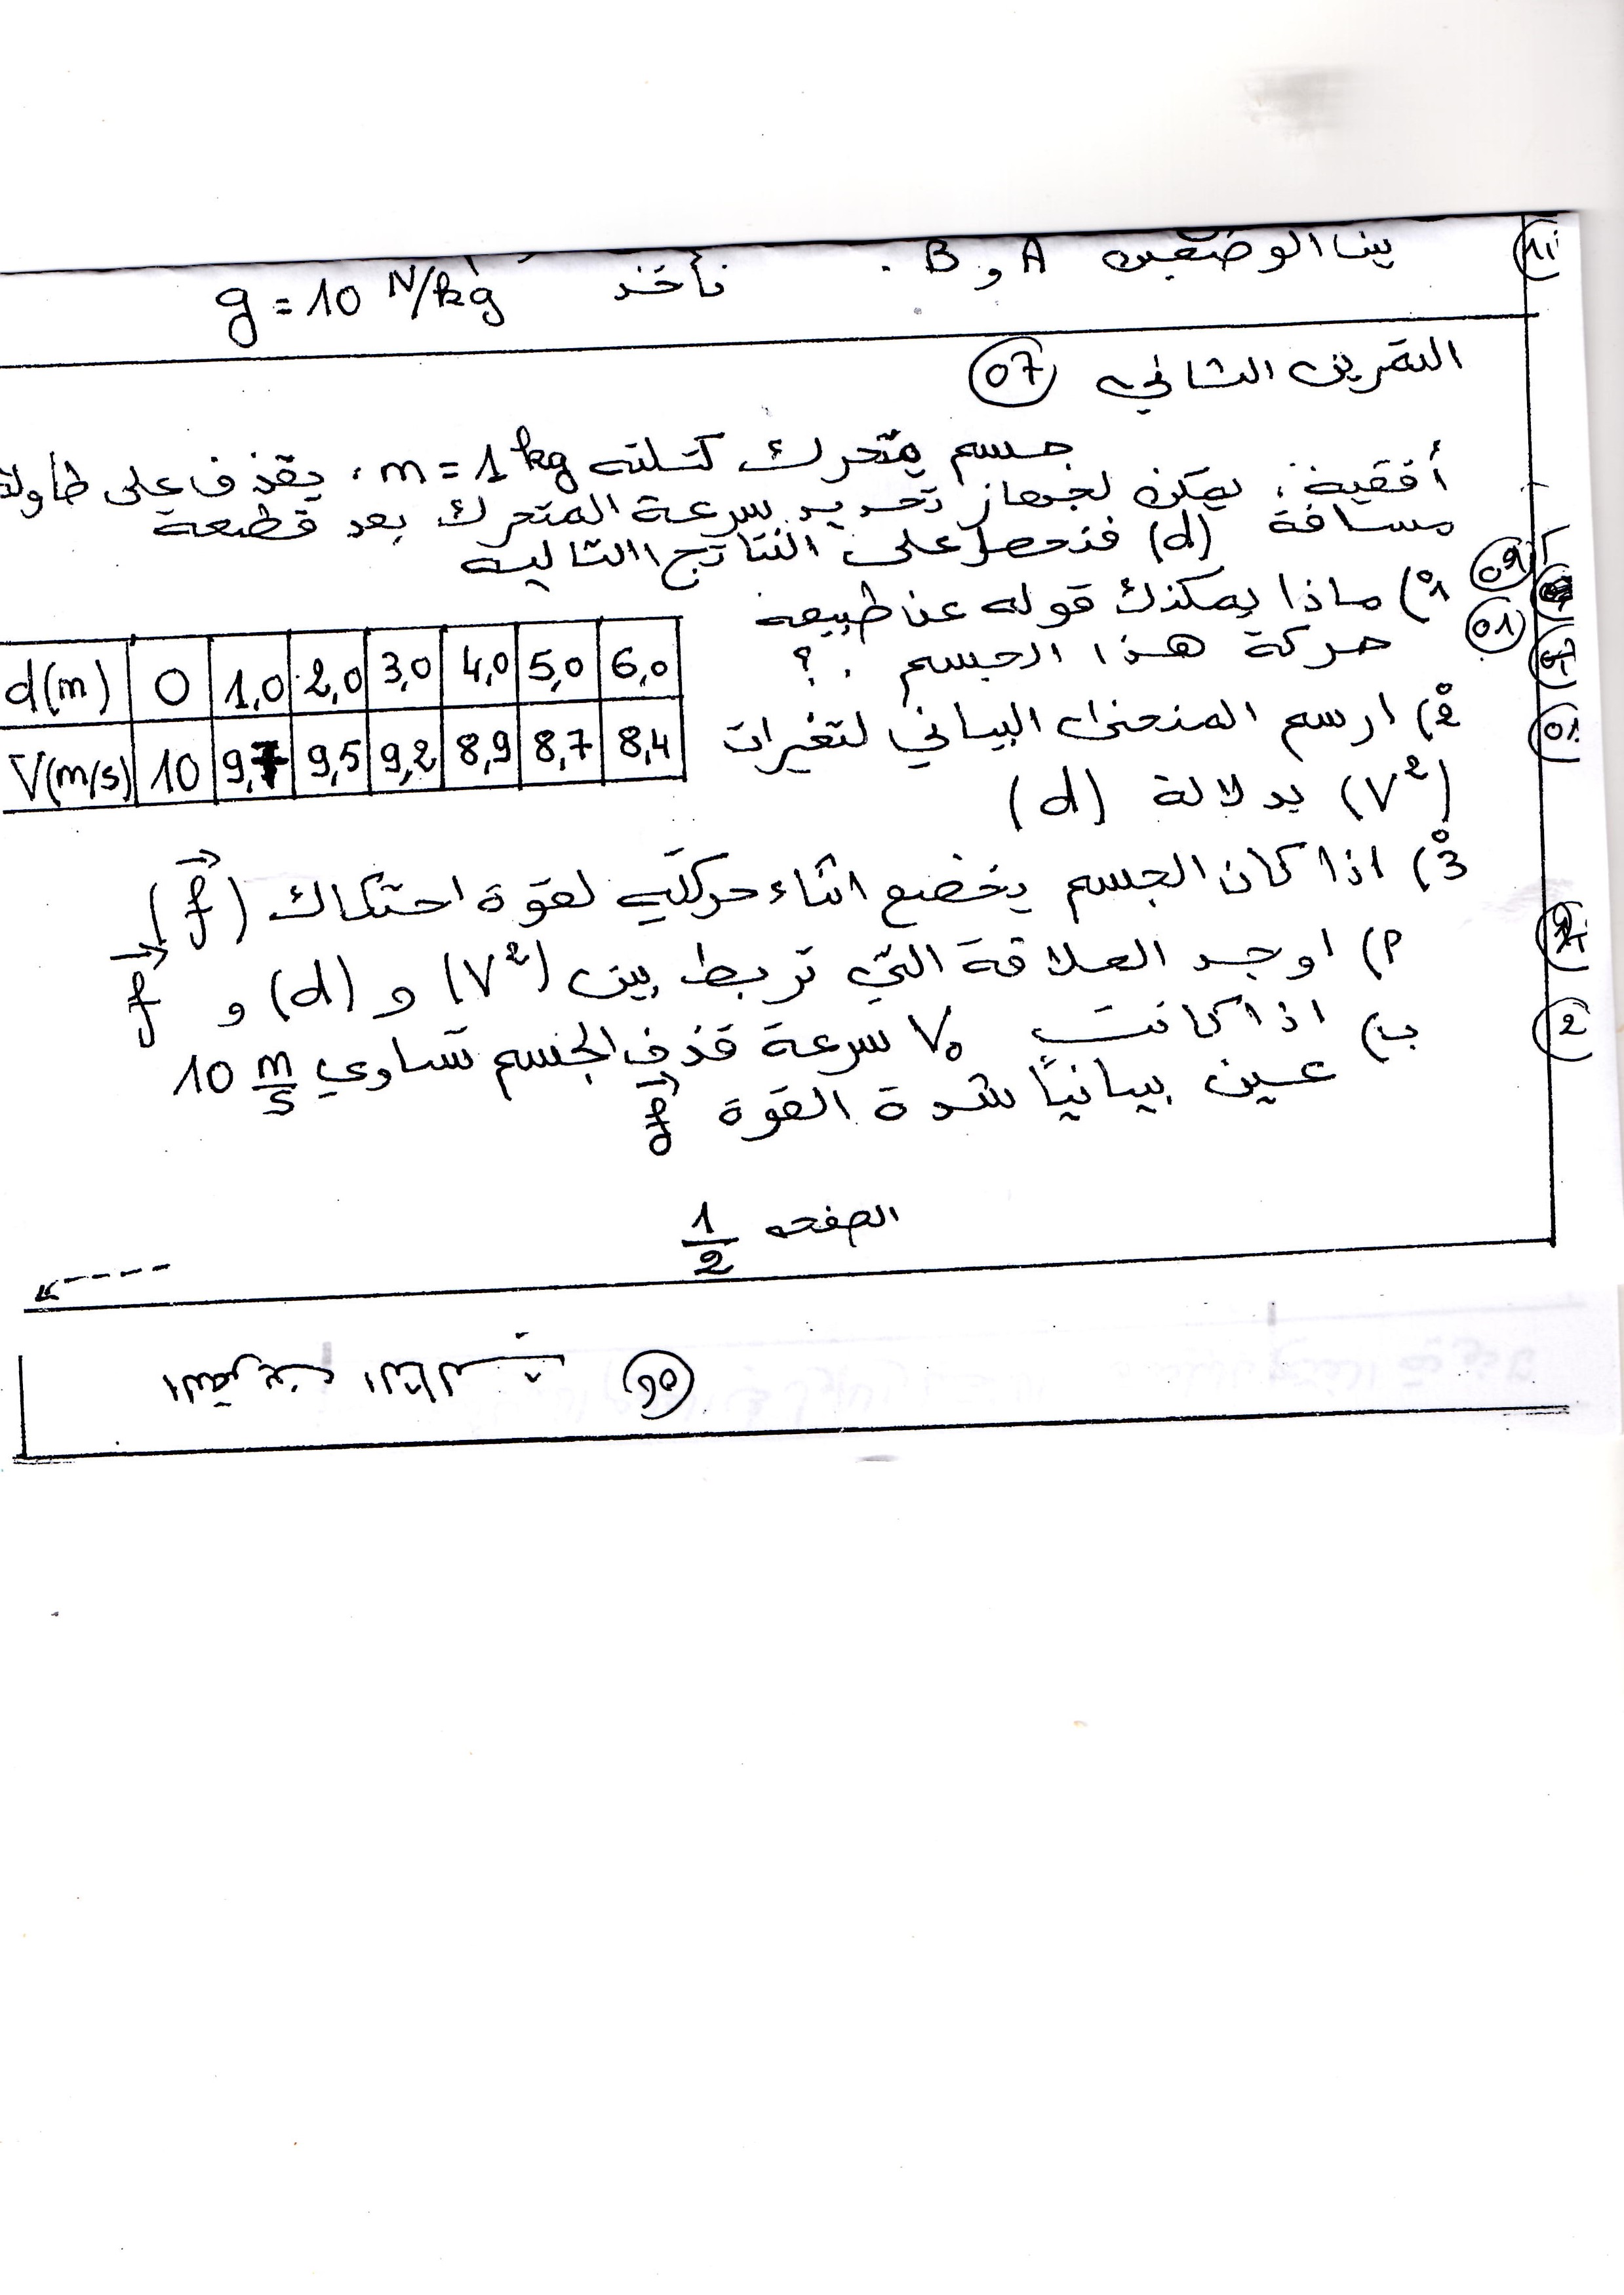 بين الوضعين A و B . نأخذ g = 10 N/kg
التمرين الثاني 07
جسم متحرك كتلته m = 1 kg ، يقذف على طاولة
أفقية ، يمكن لجهاز تحديد سرعة المتحرك بعد قطعه
مسافة (d) فنحصل على النتائج التالية
1°) ماذا يمكنك قوله عن طبيعة
حركة هذا الجسم . ؟
d(m) 0 1,0 2,0 3,0 4,0 5,0 6,0
V(m/s) 10 9,7 9,5 9,2 8,9 8,7 8,4
2°) ارسم المنحنى البياني لتغيرات
(V²) بدلالة (d)
3°) اذا كان الجسم يخضع اثناء حركته لقوة احتكاك (f)
أ) اوجد العلاقة التي تربط بين (V²) و (d) و f
ب) اذا كانت V₀ سرعة قذف الجسم تساوي 10 m/s
عين بيانياً شدة القوة f
الصفحة 1/2
التمرين الثالث
01
01
2